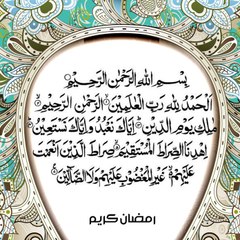 بِسْمِ اللهِ الرَّحْمٰنِ الرَّحِيْمِ
اَلْحَمْدُ لِلّٰهِ رَبِّ الْعٰلَمِيْنَ ۝ الرَّحْمٰنِ الرَّحِيْمِ ۝
مٰلِكِ يَوْمِ الدِّيْنِ ۝ اِيَّاكَ نَعْبُدُ وَاِيَّاكَ نَسْتَعِيْنُ ۝
اِهْدِنَا الصِّرَاطَ الْمُسْتَقِيْمَ ۝ صِرَاطَ الَّذِيْنَ اَنْعَمْتَ
عَلَيْهِمْ غَيْرِ الْمَغْضُوْبِ عَلَيْهِمْ وَلَا الضَّآلِّيْنَ ۝
رمضان كريم